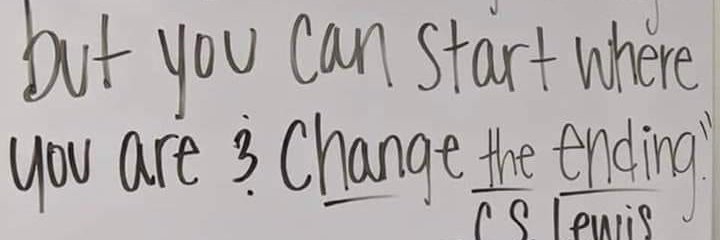 but you can start where
you are & change the ending."
CS Lewis